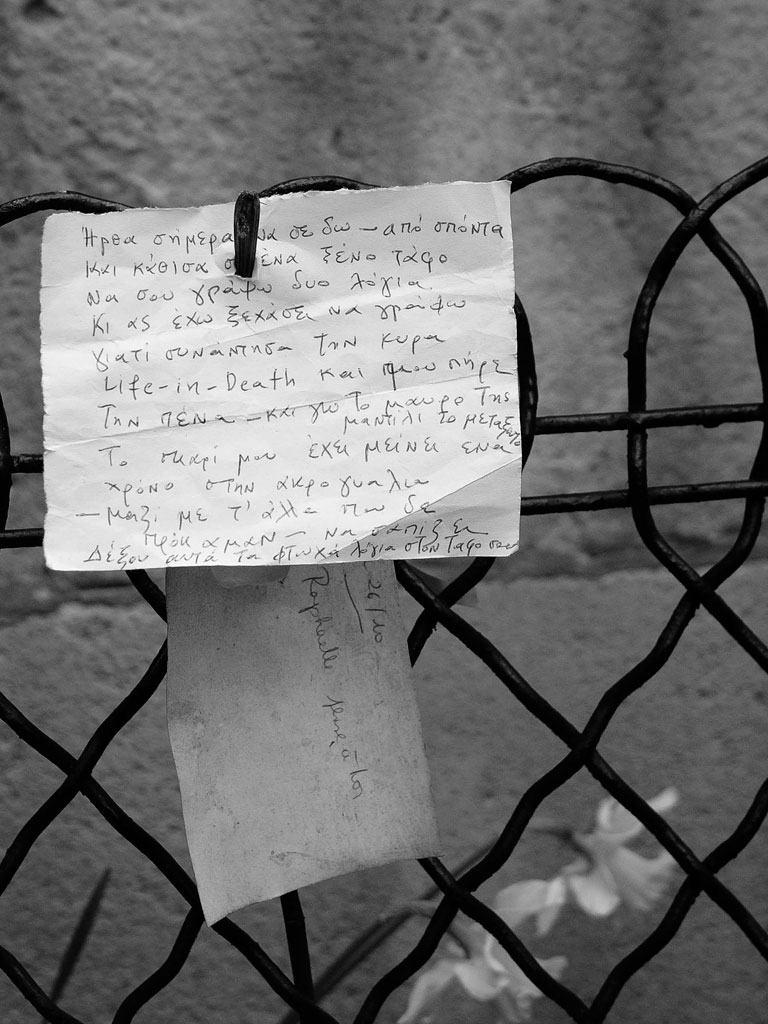 Ήρθα σήμερα να σε δω – από σπόντα
και κάθισα σ ένα ξένο τάφο
να σου γράψω δυο λόγια.
Κι ας έχω ξεχάσει να γράφω
γιατί συνάντησα την κυρα
Life-in-Death και μου πήρε
την πένα – και για το μαυρο της
μαντίλι το μεταξωτο
Το σκαρί μου έχει μείνει ενα
χρόνο στην ακρογυαλια
– μαζί με τ' άλλα που δα
– να σαπίζει
Δέξου αυτά τα φτωχά λόγια στον τάφο σου
26/10
Raphaelle pense à toi